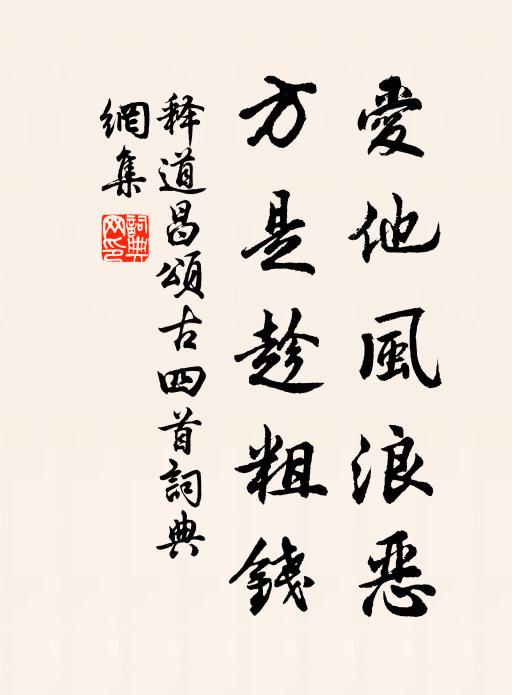 愛他風浪惡
方是趁粗錢
释道昌頌古四首詞典
網集
詞典
网印